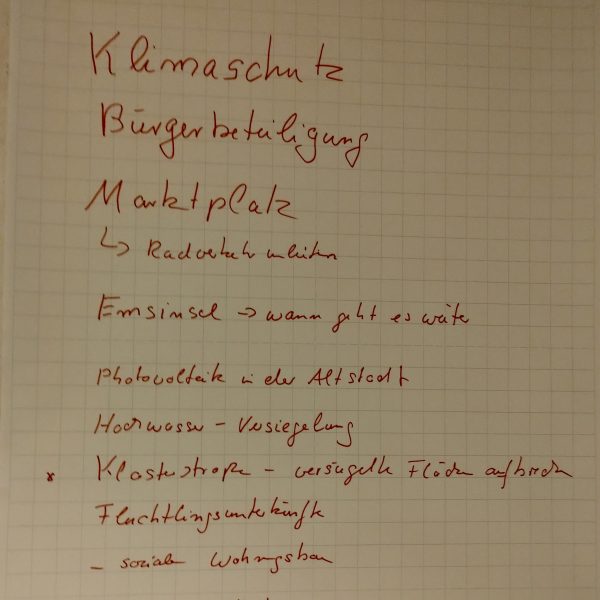 Klimaschutz
Bürgerbeteiligung
Marktplatz
↳ Radverkehr umleiten
Emsinsel → wann geht es weiter
Photovoltaik in der Altstadt
Hochwasser - Versiegelung
* Klosterstraße - versiegelte Flächen aufbrechen
Fluchtlingsunterkünfte
- sozialer Wohnungsbau